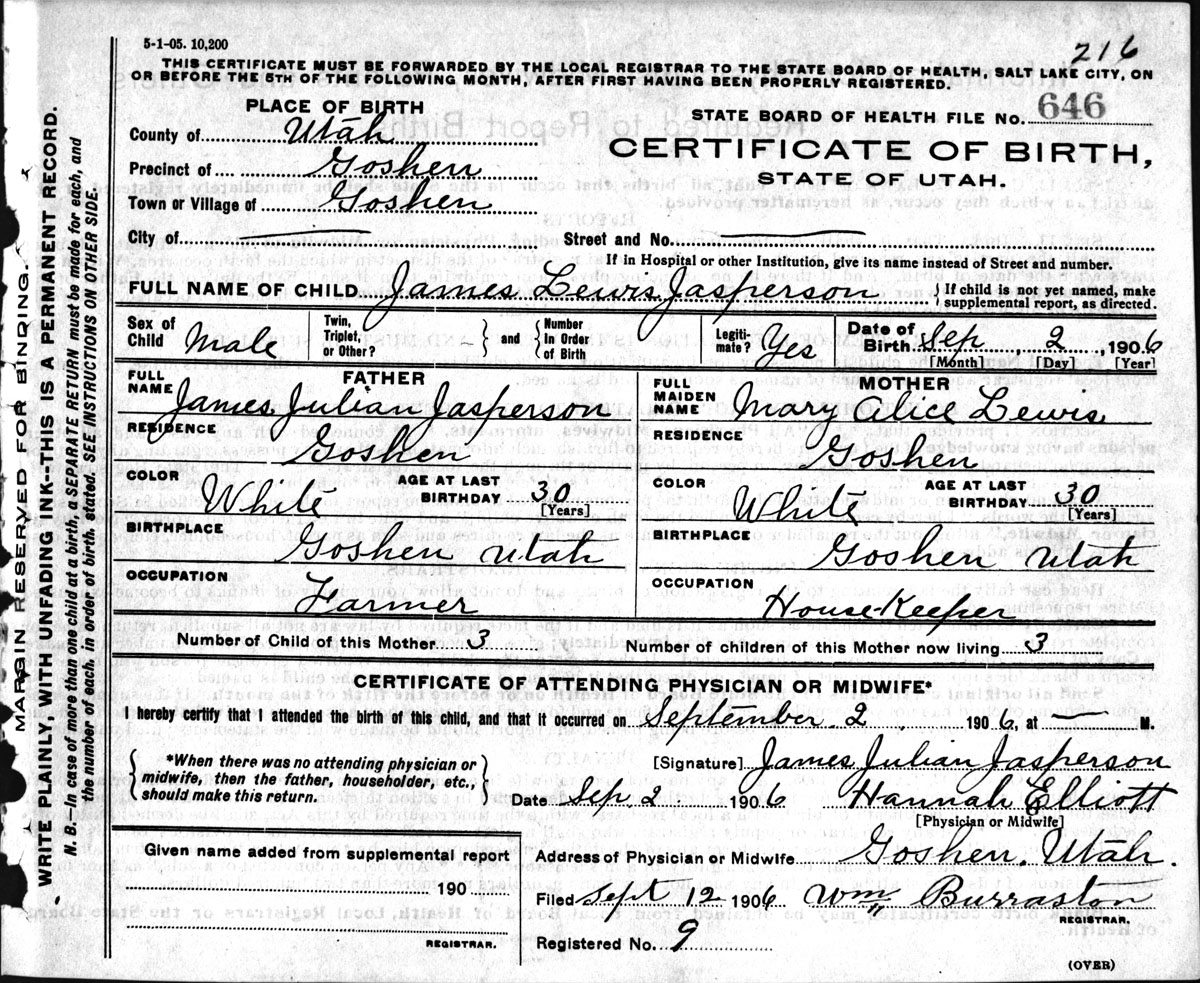 5-1-05. 10,200
216
THIS CERTIFICATE MUST BE FORWARDED BY THE LOCAL REGISTRAR TO THE STATE BOARD OF HEALTH, SALT LAKE CITY, ON
OR BEFORE THE 5TH OF THE FOLLOWING MONTH, AFTER FIRST HAVING BEEN PROPERLY REGISTERED.
PLACE OF BIRTH
County of Utah
Precinct of Goshen
Town or Village of Goshen
STATE BOARD OF HEALTH FILE NO. 646
CERTIFICATE OF BIRTH,
STATE OF UTAH.
City of
Street and No.
If in Hospital or other Institution, give its name instead of Street and number.
FULL NAME OF CHILD James Lewis Jasperson
If child is not yet named, make
supplemental report, as directed.
Sex of
Child Male
Twin,
Triplet,
or Other?
and
Number
in Order
of Birth
Legiti-
mate? Yes
Date of
Birth Sep 2, 1906
[Month] [Day] [Year]
FATHER
FULL
NAME James Julian Jasperson
RESIDENCE
Goshen
COLOR
White
AGE AT LAST
BIRTHDAY 30
[Years]
BIRTHPLACE
Goshen Utah
OCCUPATION
Farmer
MOTHER
FULL
MAIDEN
NAME Mary Alice Lewis
RESIDENCE
Goshen
COLOR
White
AGE AT LAST
BIRTHDAY 30
[Years]
BIRTHPLACE
Goshen Utah
OCCUPATION
House-Keeper
Number of Child of this Mother 3
Number of children of this Mother now living 3
CERTIFICATE OF ATTENDING PHYSICIAN OR MIDWIFE*
I hereby certify that I attended the birth of this child, and that it occurred on September 2, 1906, at — M.
*When there was no attending physician or
midwife, then the father, householder, etc.,
should make this return.
[Signature] James Julian Jasperson
Date Sep 2 1906 Hannah Elliott
[Physician or Midwife]
Given name added from supplemental report
190
REGISTRAR.
Address of Physician or Midwife Goshen, Utah.
Filed Sept 12 1906 Wm Burraston
REGISTRAR.
Registered No. 9
(OVER)
MARGIN RESERVED FOR BINDING.
WRITE PLAINLY, WITH UNFADING INK--THIS IS A PERMANENT RECORD.
N. B.--In case of more than one child at a birth, a SEPARATE RETURN must be made for each, and
the number of each, in order of birth, stated. SEE INSTRUCTIONS ON OTHER SIDE.